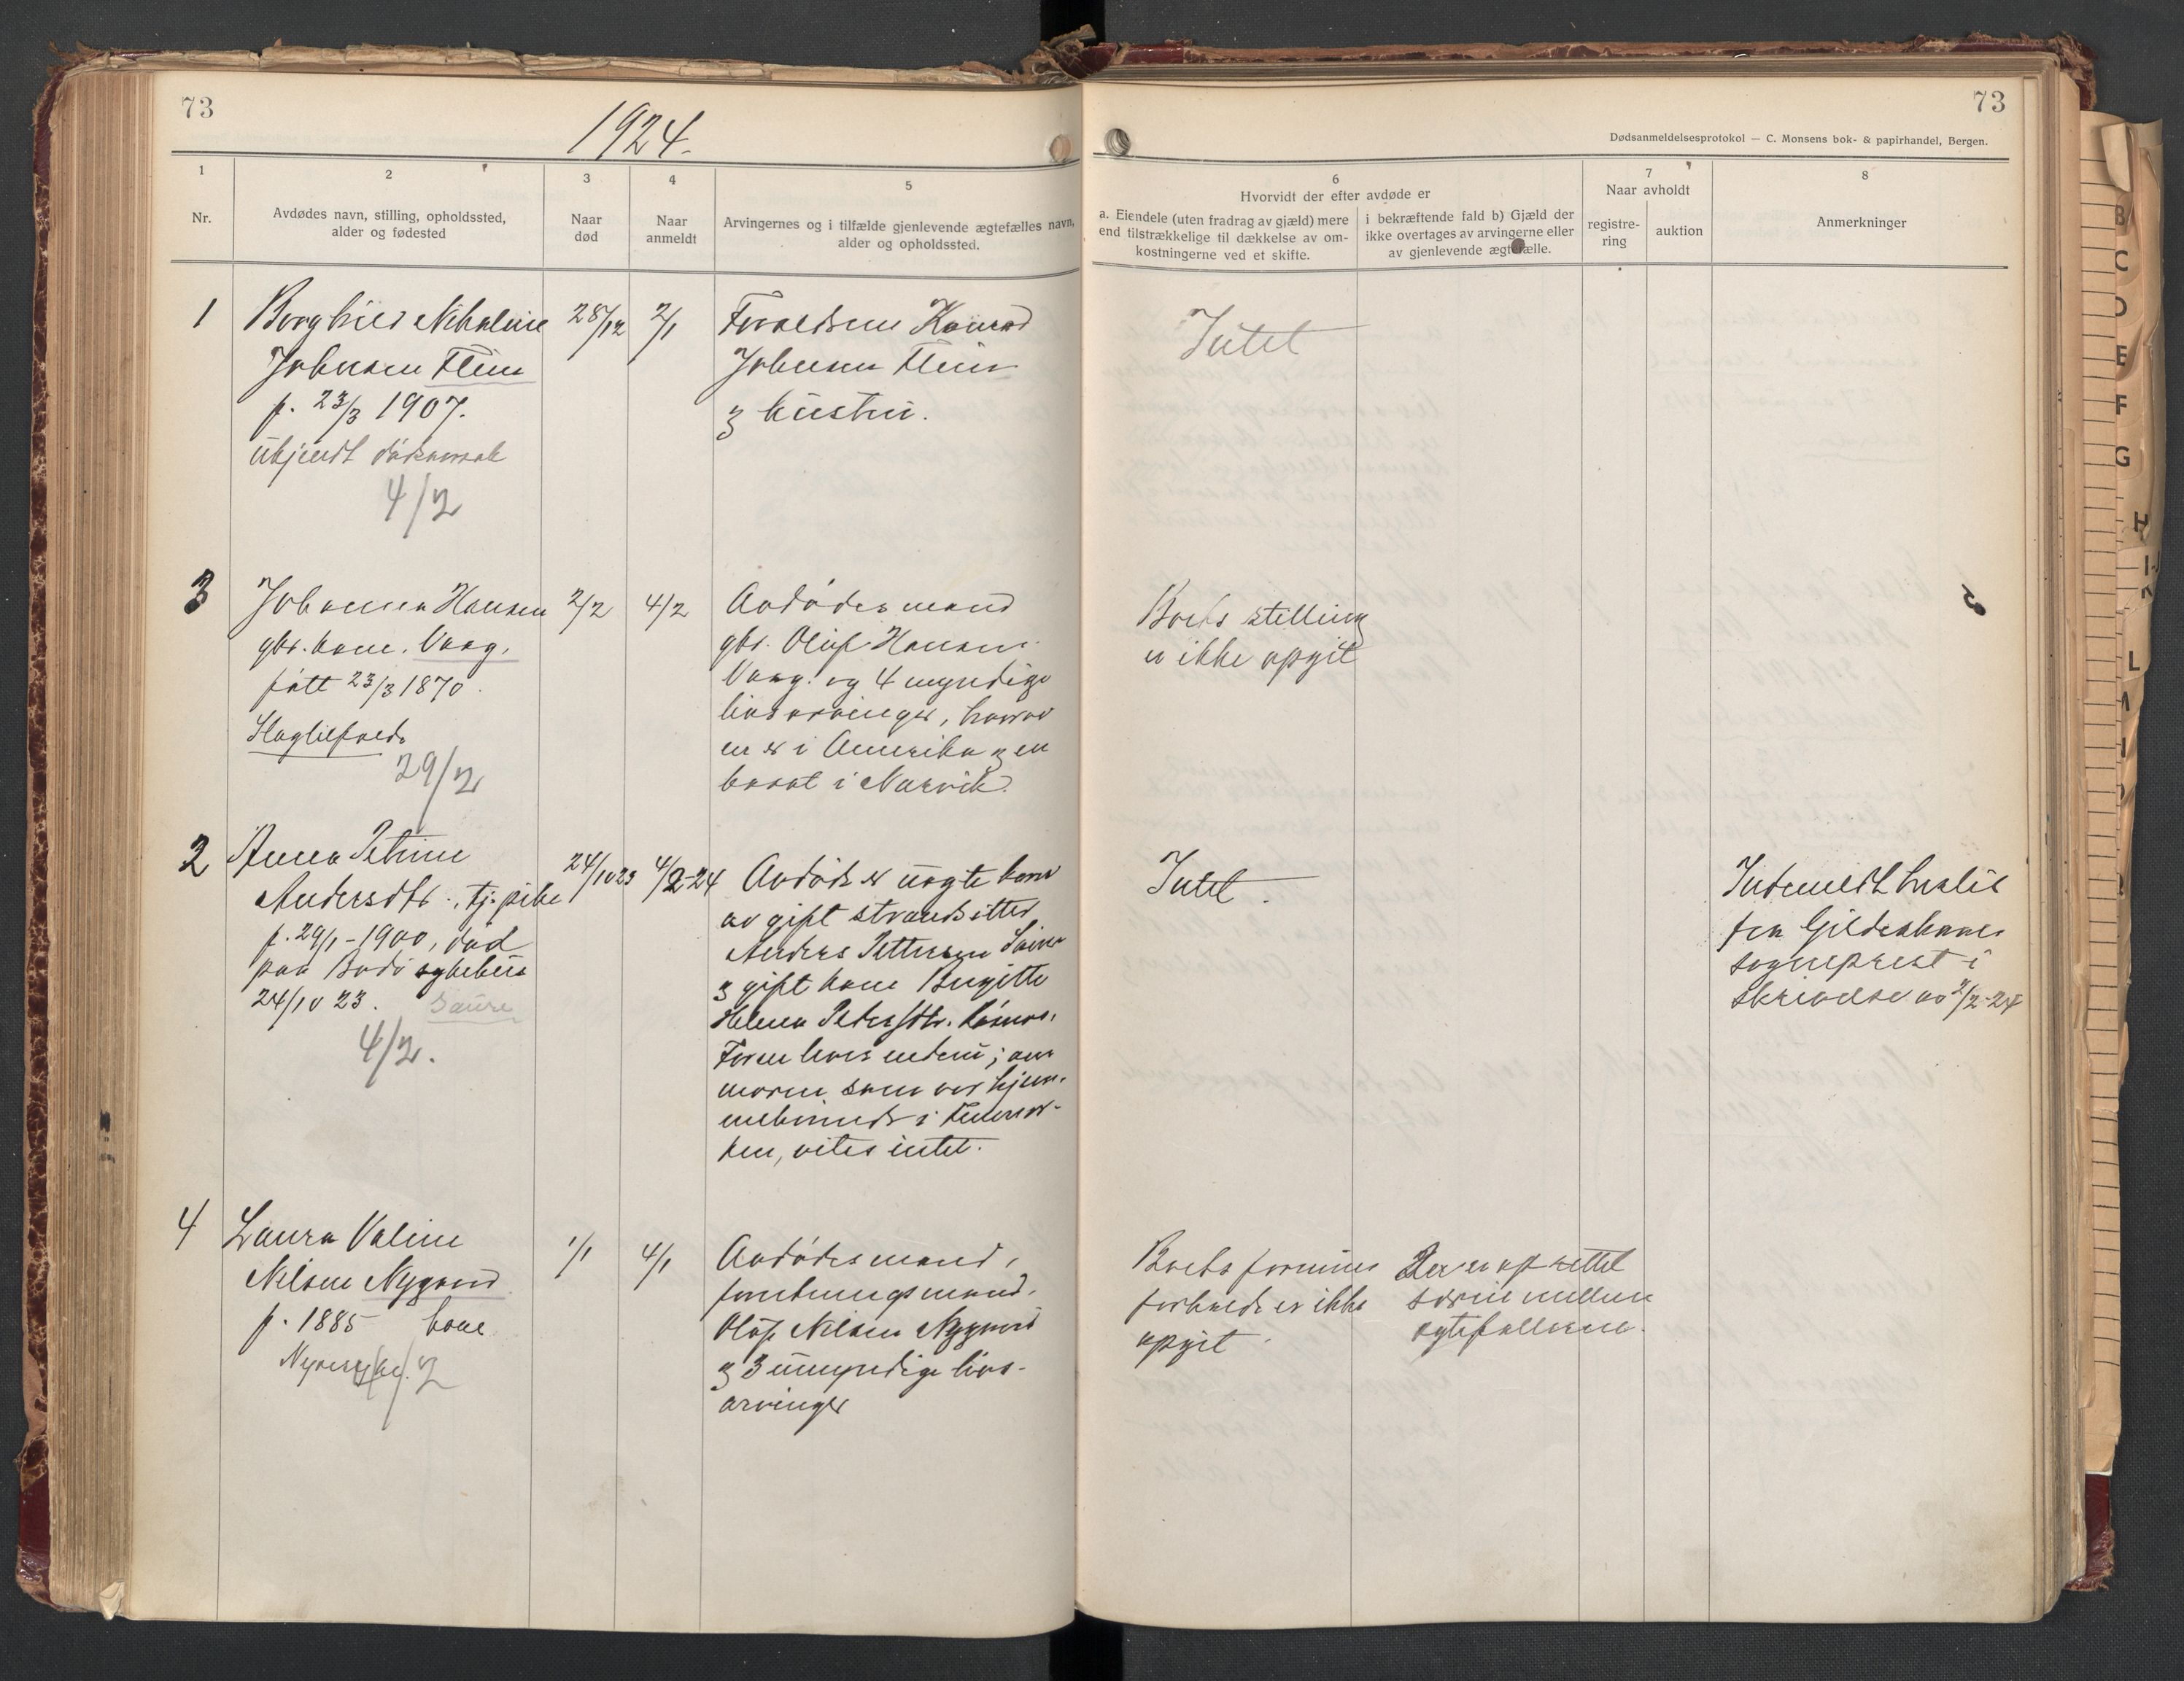 73
1924.
1
Nr.
2
Avdødes navn, stilling, opholdssted,
alder og fødested
3
Naar
død
4
Naar
anmeldt
5
Arvingernes og i tilfælde gjenlevende ægtefælles navn,
alder og opholdssted.
73
Dødsanmeldelsesprotokol — C. Monsens bok- & papirhandel, Bergen.
6
Hvorvidt der efter avdøde er
a. Eiendele (uten fradrag av gjæld) mere
end tilstrækkelige til dækkelse av om-
kostningerne ved et skifte.
i bekræftende fald b) Gjæld der
ikke overtages av arvingerne eller
av gjenlevende ægtefælle.
7
Naar avholdt
registre-
ring
auktion
8
Anmerkninger
1
Borghild Nikoline
Johnsen
f. 23/3 1907.
ukjendt dødsaarsak
4/2
28/12
2/1
Forældrene Konrad
Johnsen
og hustru.
Intet
3
Johanna Hansen
gbr. kone. Vaag.
født 23/3 1870.
29/2
2/2
4/2
Avdødes mand
gbr. Oluf Hansen
Vaag. og 4 myndige
livsarvinger, hvorav
en er i Amerika og en
bosat i Narvik.
Boets stilling
er ikke opgit
2
Anna Petrine
Andersdtr., tj. pike
f. 29/1-1900, død
paa Bodø sykehus
24/10 23.
Saura
4/2.
24/10 23
4/2-24
Avdøde er uægte barn
av gift strandsitter
Anders Pettersen Saura
og gift kone Birgitte
Helena Pedersdtr.
Faren lever endnu; om
moren som var hjem-
mehørende i Finmar-
ken, vites intet.
Intet.
Indmeldt hertil
fra Gildeskaals
sogneprest i
skrivelse av 2/2-24
4
Laura Valine
Nilsen Nygaard
f. 1885 kone
4/2
1/1
4/1
Avdødes mand,
forretningsmand.
Oluf Nilsen Nygaard
og 3 umyndige livs-
arvinger
Boets formues
forhold er ikke
opgit.
Der er oprettet
særeie mellem
egtefællerne.
B
C
D
E
F
G
H
L